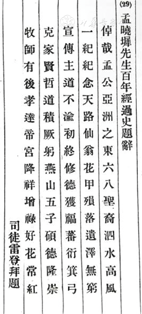 (29) 孟曉墀先生百年經過史題辭
倬哉孟公亞洲之東六八聖裔泗水高風
一紀紀念天路仙翁花甲殞落遺澤無窮
宣傳主道不渝初終修德獲福蕃衍箕弓
克家賢哲道積厥躬燕山五子碩德隆崇
牧師有後孝達帝宮降祥增祿好花常紅
司徒雷登拜題